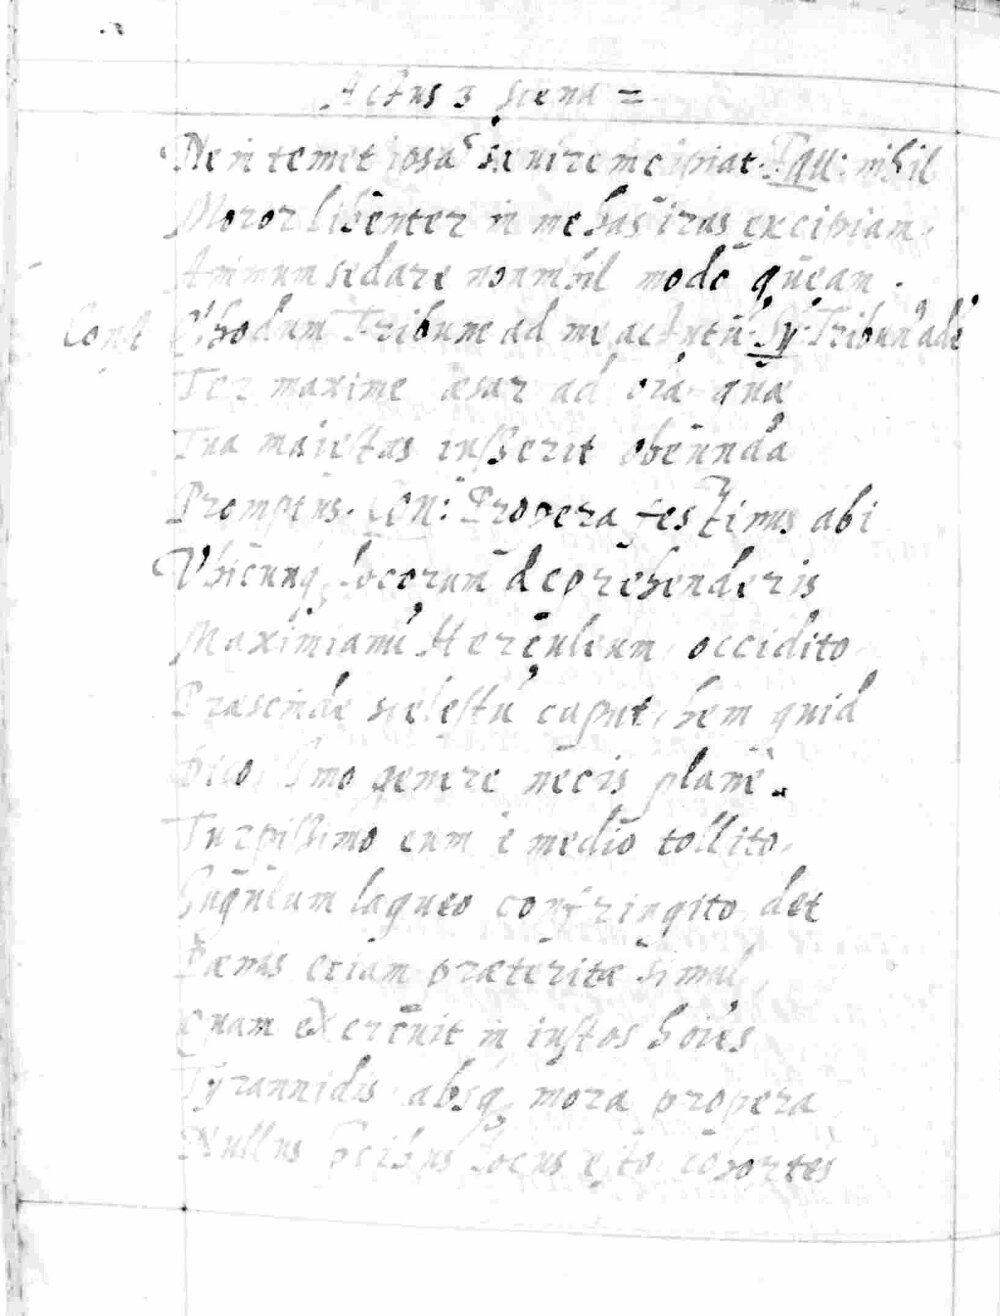 Actus 3 scena =
Ne in temet ipsa sævire incipiat. Equ: nihil
Moror libenter in me has iras excipiam
Animum sedare nonnihil modo queam.
Const Ehodum Tribune ad me actutū. Sy: Tribun' adē
Ter maxime æsar ad oīa quæ
Tua maiestas iusserit obeunda
Promptus. Con: Propera festinus abi
Vbicunq locorum deprehenderis
Maximianū Herculeum occidito
Præscinde scelestū caput, hem quid
Dico, Imo genere necis planè
Turpissimo eum è medio tollito,
Gugulum laqueo confringito, det
Pænas etiam præteritæ simul,
quam exercuit in iustos hoīes
Tyrannidis absq mora propera
Nullus pcibus locus esto cohortes